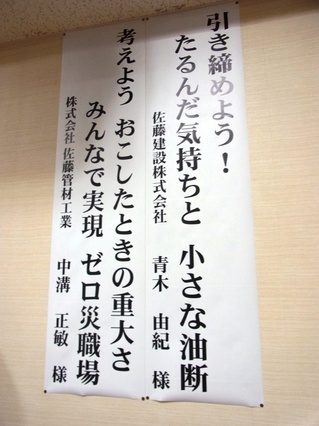 引き締めよう!
たるんだ気持ちと 小さな油断
佐藤建設株式会社 青木 由紀 様
考えよう おこしたときの重大さ
みんなで実現 ゼロ災職場
株式会社 佐藤管材工業 中溝 正敏 様